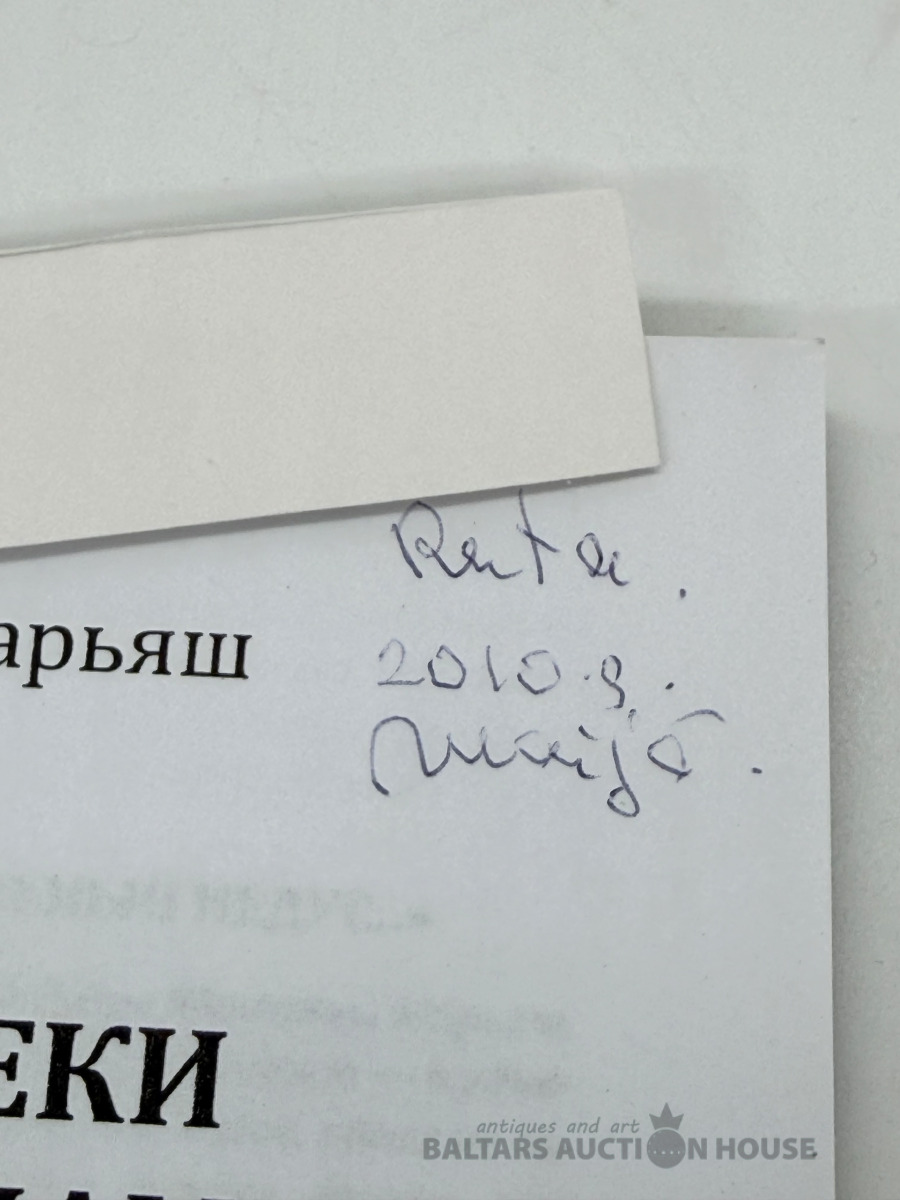 Ruta.
арьяш
2010.g.
Maijā.
ЕКИ
antiques and art
BALTARS AUCTION HOUSE